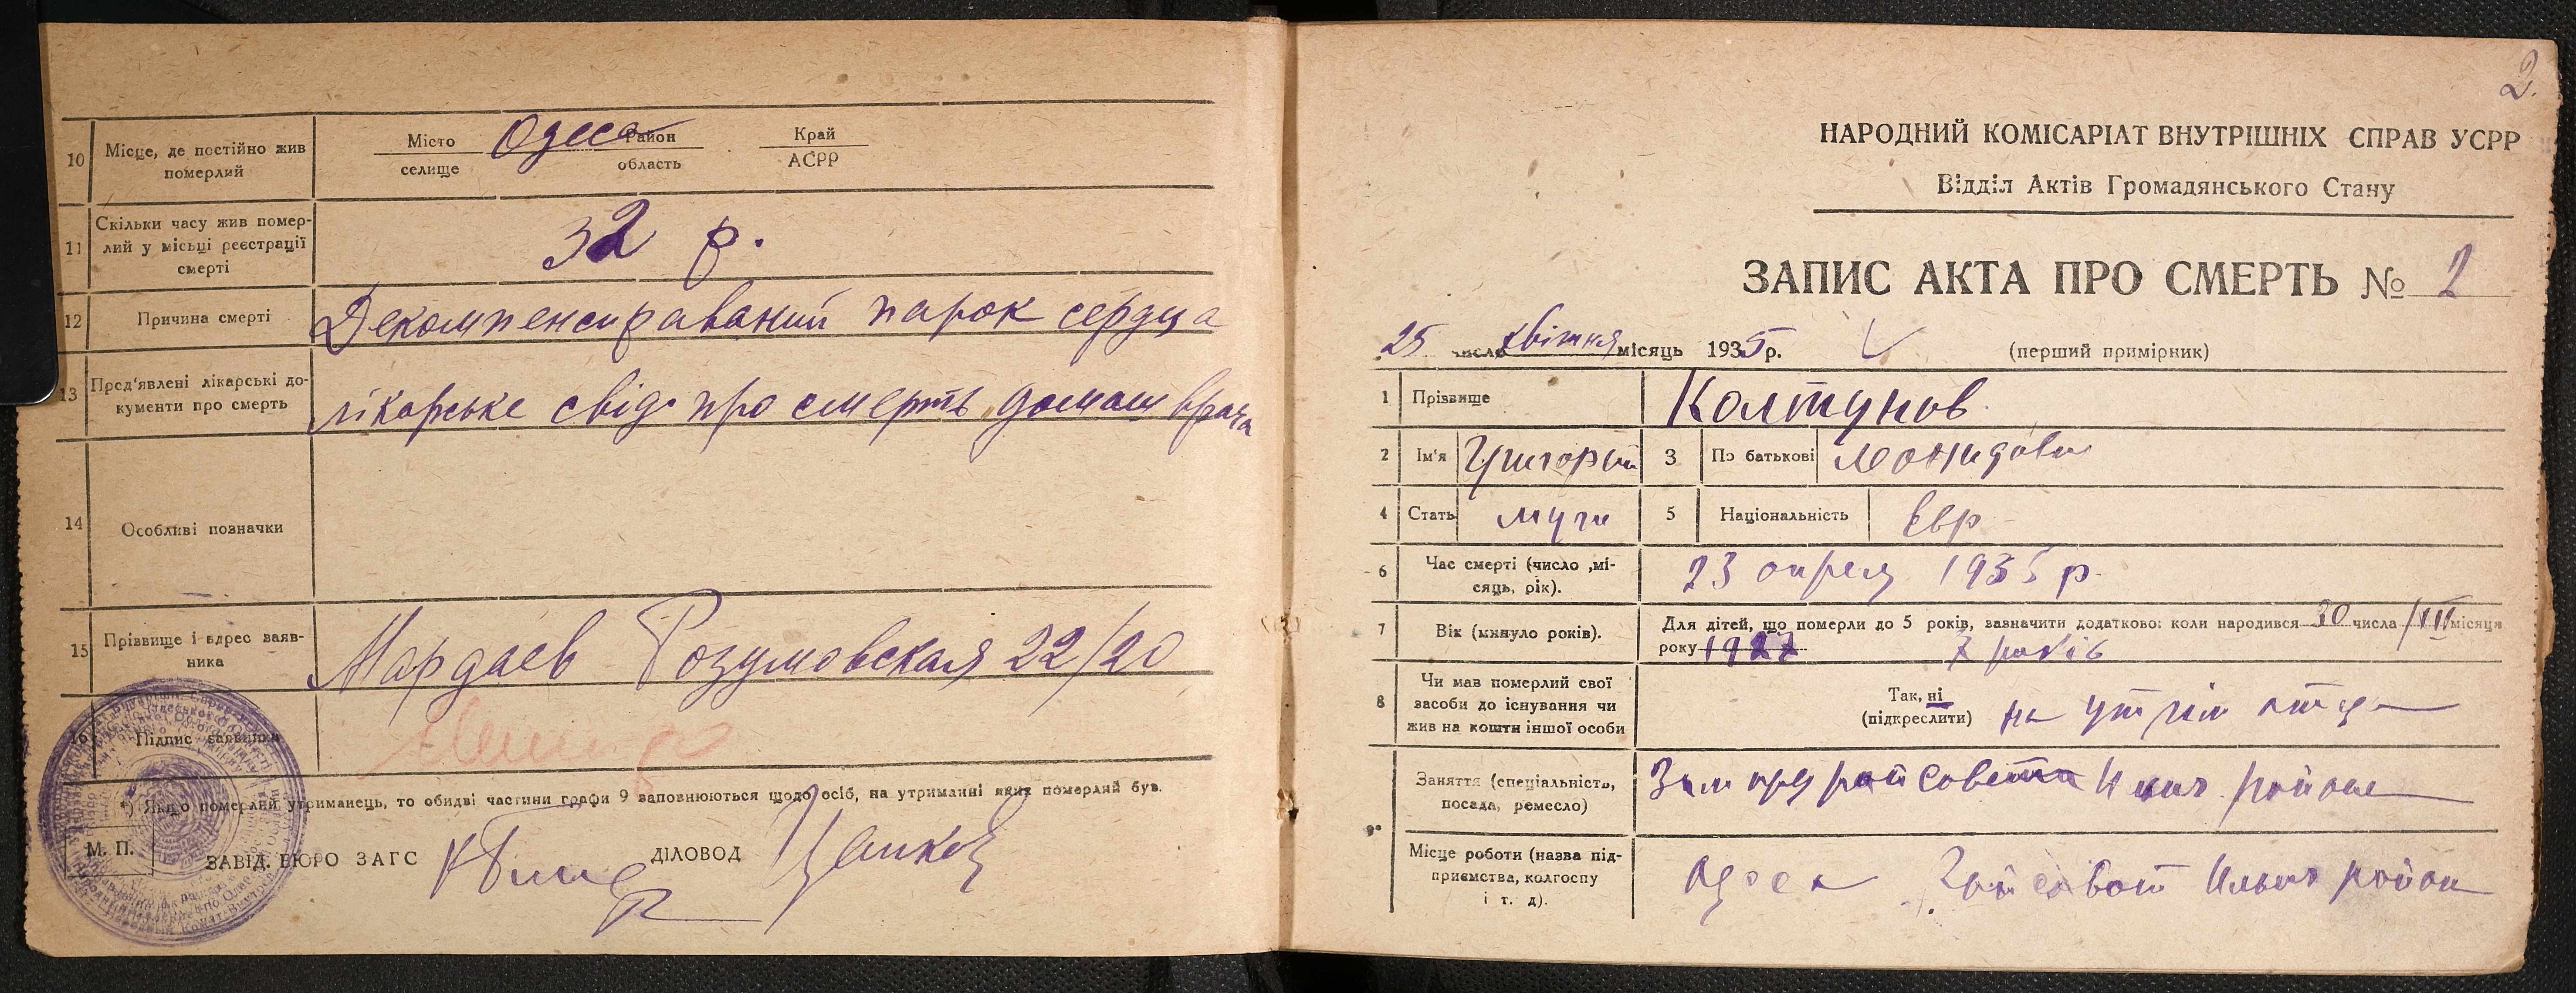 10 Місце, де постійно жив померлий
Місто
селище
Одеса
Район
область
Край
АСРР
11 Скільки часу жив помер-
лий у місьці реєстрації
смерті
32 р.
12 Причина смерті
Декомпенсираваний парок сердца
13 Пред'явлені лікарські до-
кументи про смерть
лікарське свід. про смерть домаш врача
14 Особливі позначки
15 Прізвище і адрес заяв-
ника
Мардаев Розумовская 22/20
16 Підпис заявника
*) Якщо померлий утриманець, то обидві частини графи 9 заповнюються щодо осіб, на утриманні яких померлий був.
М. П.
ЗАВІД. БЮРО ЗАГС
ДІЛОВОД
2.
НАРОДНИЙ КОМІСАРІАТ ВНУТРІШНІХ СПРАВ УСРР
Відділ Актів Громадянського Стану
ЗАПИС АКТА ПРО СМЕРТЬ № 2
25 число квітня місяць 1935 р. (перший примірник)
1 Прізвище Колтунов
2 Ім'я Григорий 3 По батькові
4 Стать муж 5 Національність Евр
6 Час смерті (число ,мі-
сяць, рік).
23 апреля 1935 р.
7 Вік (минуло років).
Для дітей, що померли до 5 років, зазначити додатково: коли народився 30 числа /VIII місяця
року 1927 7 років
8 Чи мав померлий свої
засоби до існування чи
жив на кошти іншої особи
Так, ні
(підкреслити)
на утрім отца
9* Заняття (спеціальність,
посада, ремесло)
Зам пред райсовета Ильич района
Місце роботи (назва під-
приємства, колгоспу
і т. д).
Одеса Райсовет Ильич район